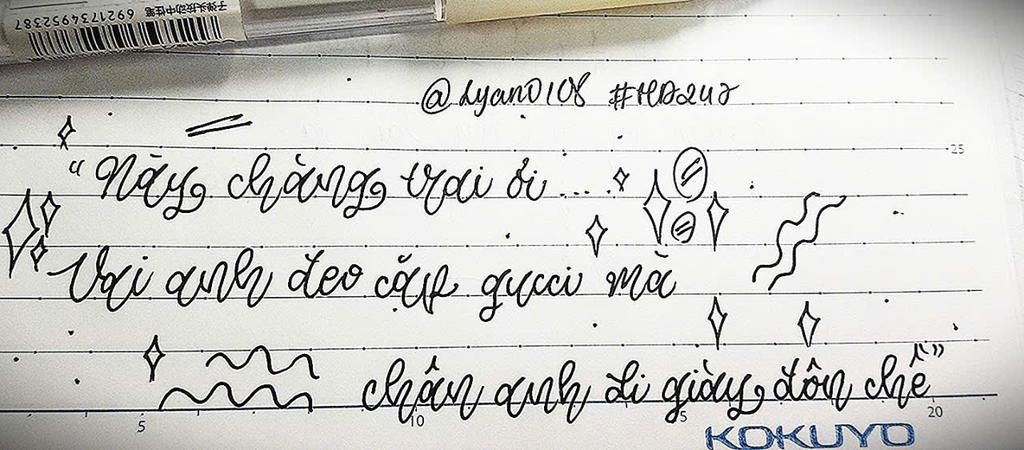 6921734952387
子弹头按动中性笔
@Lyan0108 #HD247
25
“ Này chàng trai ơi ...
Vai anh đeo cặp gucci mà
chân anh đi giày đôn chề ”
5 10 15 20
KOKUYO